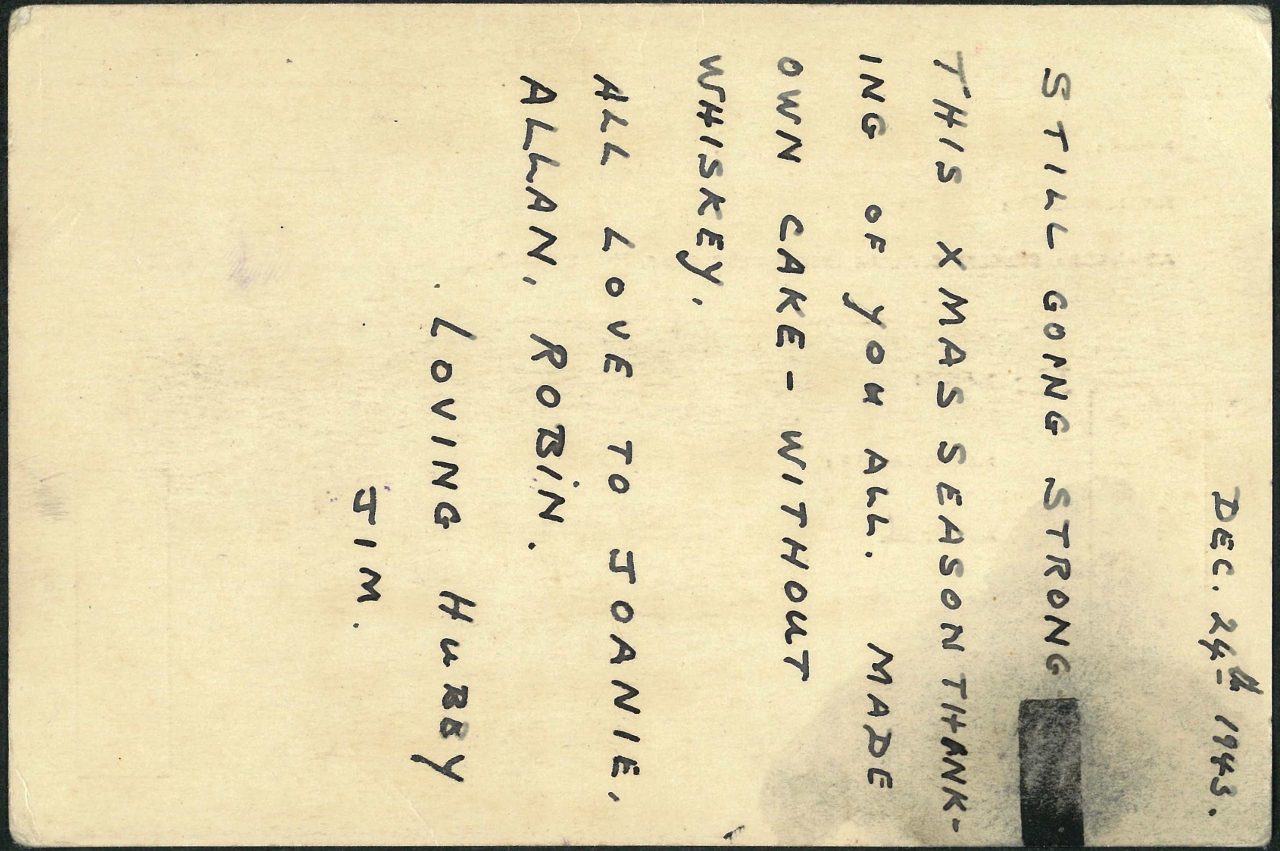 DEC. 24th 1943.
STILL GOING STRONG
THIS XMAS SEASON THANK-
ING OF YOU ALL. MADE
OWN CAKE - WITHOUT
WHISKEY.
ALL LOVE TO JOANIE,
ALLAN, ROBIN.
LOVING HUBBY
JIM.